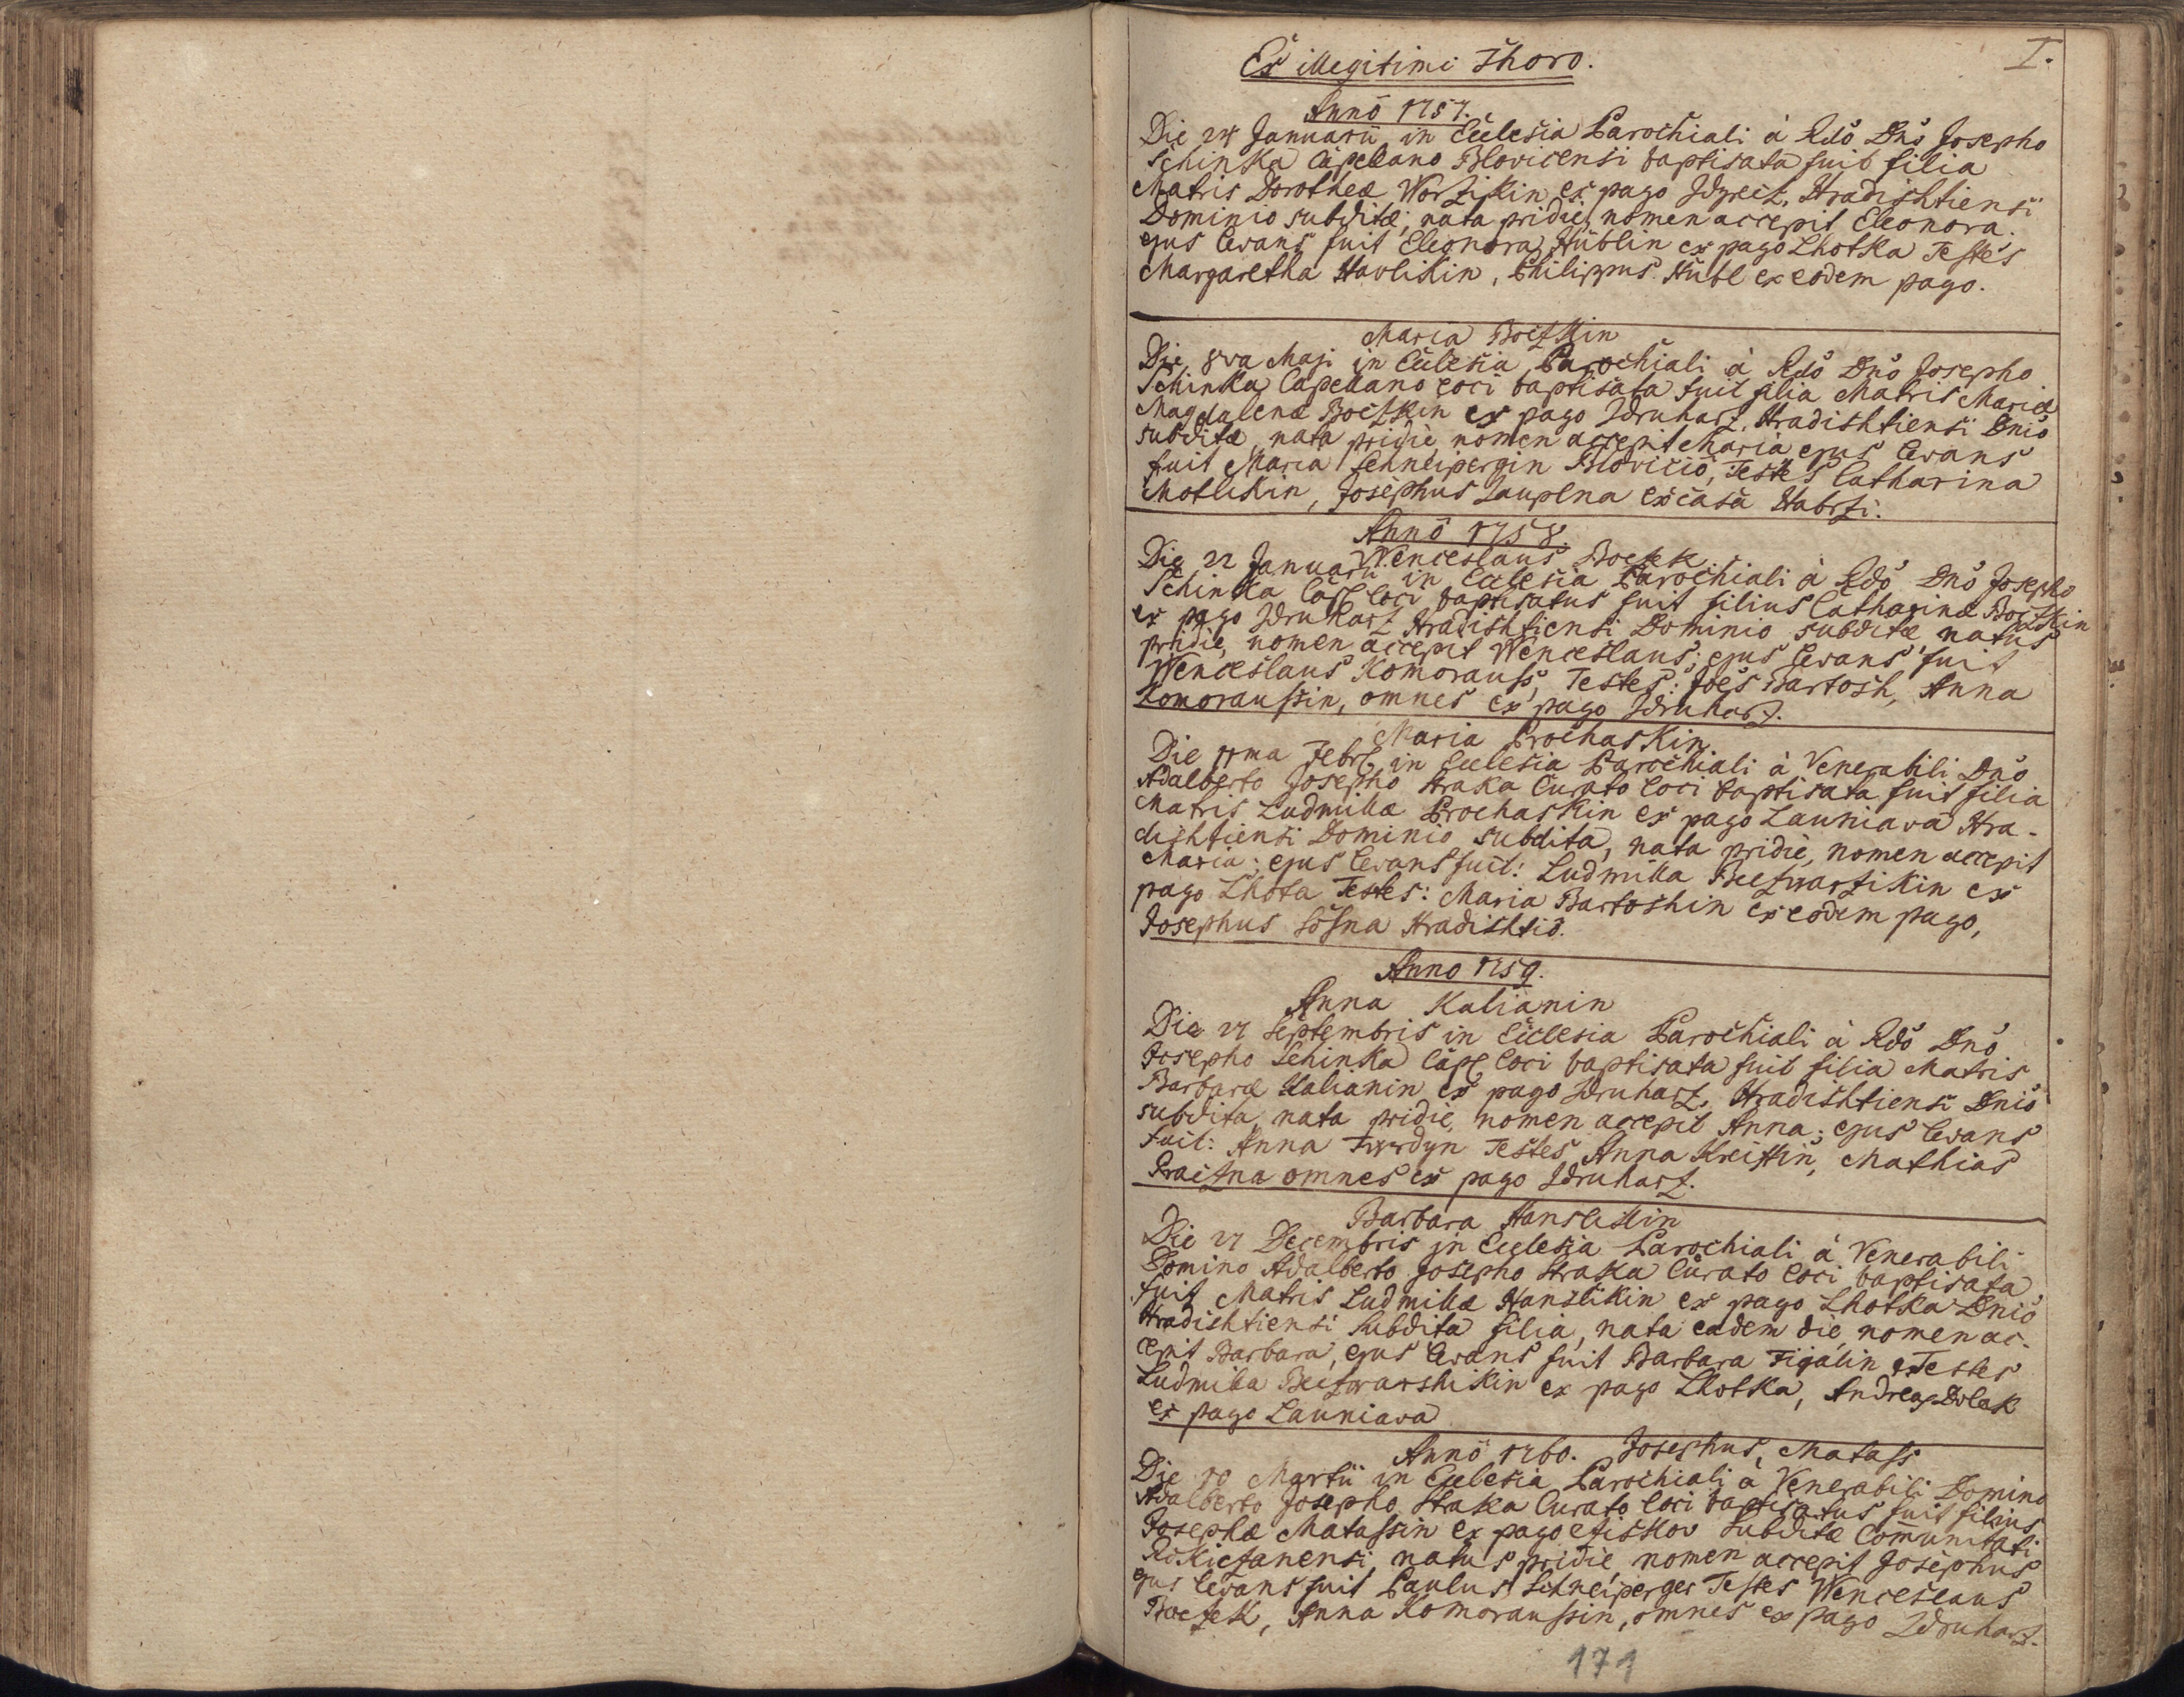 Ex illegitimi Thoro.
I.
Anno 1757.
Die 24 Januarii in Ecclesia Parochiali à Rdo Dno Josepho
Schinka Capellano Blovicensi baptisata fuit filia
Matris Dorotheæ Worzikin ex pago Zdyretz, Hradishtiensi
Dominio subditæ; nata pridie, nomen accepit Eleonora.
ejus levans fuit Eleonora Hüblin ex pago Lhotka Testes
Margaretha Havlikin, Philippus Hübl ex eodem pago.
Maria Boczkin
Die 8va Maji in Ecclesia Parochiali à Rdo Dno Josepho
Schinka Capellano loci baptisata fuit filia Matris Mariæ
Magdalenæ Boczkin ex pago Zdruharz, Hradishtiensi Dnio
subditæ, nata pridie nomen accepit Maria ejus levans
fuit Maria Schneipergin Blovicio, Testes Catharina
Motlikin, Josephus Zauplna ex casa Habrzi.
Anno 1758.
Wenceslaus Boczek
Die 22 Januarii in Ecclesia Parochiali à Rdo Dno Josepho
Schinka Cap loci baptisatus fuit filius Catharinæ Boczkin
ex pago Zdruharz Hradishtiensi Dominio subditæ natus
pridie, nomen accepit Wenceslaus; ejus levans fuit
Wenceslaus Komorauss, Testes: Joes Bartosh, Anna
Komoraussin, omnes ex pago Zdruharz.
Maria Prochaskin
Die 11ma Febr in Ecclesia Parochiali à Venerabili Dno
Adalberto Josepho Straka Curato loci baptisata fuit filia
Matris Ludmilla Prochaskin ex pago Launiava Hra-
dishtiensi Dominio subdita, nata pridie, nomen accepit
Maria; ejus levans fuit: Ludmilla Beczwarzikin ex
pago Lhota Testes: Maria Bartoshin ex eodem pago,
Josephus Sosna Hradishtio.
Anno 1759.
Anna Kalianin
Die 27 Septembris in Ecclesia Parochiali à Rdo Dno
Josepho Schinka Cap loci baptisata fuit filia Matris
Barbaræ Kalianin ex pago Zdruharz, Hradishtiensi Dnio
subdita, nata pridie, nomen accepit Anna; ejus levans
fuit: Anna Twrdyn Testes Anna Kreistin, Mathias
Praczna omnes ex pago Zdruharz.
Barbara Hanslikin
Die 27 Decembris in Ecclesia Parochiali à Venerabili
Domino Adalberto Josepho Straka Curato loci baptisata
fuit Matris Ludmillæ Hanslikin ex pago Lhotka Dnio
Hradishtiensi subdita filia, nata eadem die, nomen ac-
cepit Barbara, ejus levans fuit Barbara Figalin Testes
Ludmilla Beczwarshikin ex pago Lhotka, Andreas Dolak
ex pago Launiava
Anno 1760. Josephus Matass
Die 19 Martii in Ecclesia Parochiali à Venerabili Domino
Adalberto Josepho Straka Curato loci baptisatus fuit filius
Josephæ Matassin ex pago subditæ Comunitati
Rokiczanensi, natus pridie, nomen accepit Josephus
ejus levans fuit Paulus Schneiperger Testes Wenceslaus
Boczek, Anna Komoraussin, omnes ex pago Zdruharz.
171